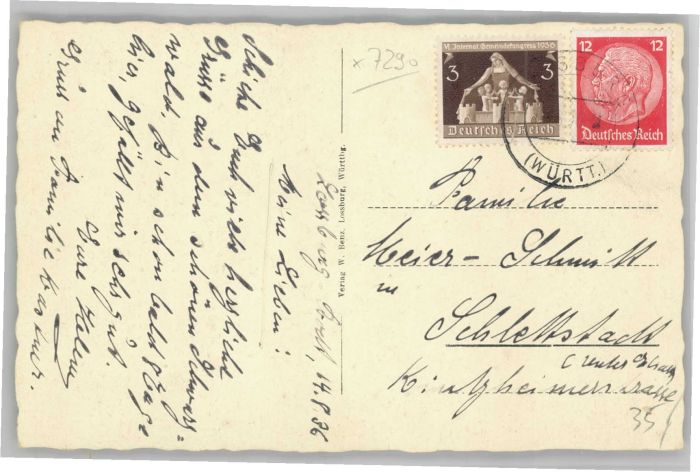 x 7290
VI. Internat. Gemeindekongress 1936
3 3
Deutsches Reich
12 12
Deutsches Reich
(WÜRTT.)
Verlag W. Benz, Lossburg, Württbg.
Lossburg-Rodt, 14.8.36
Meine Lieben!
Schicke Euch viele herzliche
Grüsse aus dem schönen Schwarz-
wald. Bin schon bald 8 Tage
hier, gefällt mir sehr gut.
Eure Helene
Gruss an Familie
Familie
Meier-Schmitt
in
Schlettstadt
Elsass
Kintzheimerstrasse
35